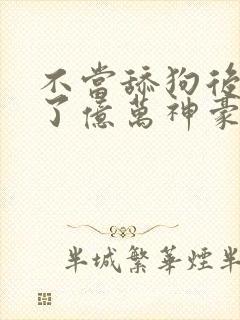 不當舔狗後
了億萬神豪
半城繁華煙半